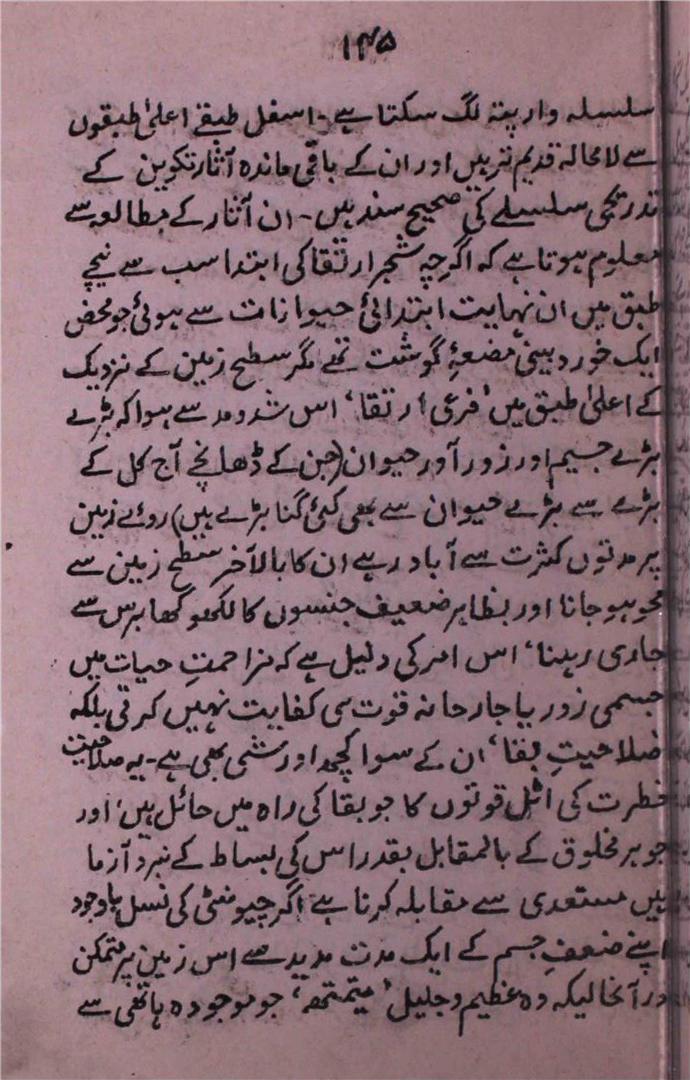 ۱۴۵
سلسلہ وار پتہ لگ سکتا ہے۔ اسفل طبقے اعلیٰ طبقوں
سے لامحالہ قدیم تر ہیں اور ان کے باقی ماندہ آثار تکوین کے
تدریجی سلسلے کی صحیح سند ہیں۔ ان آثار کے مطالعہ سے
معلوم ہوتا ہے کہ اگرچہ شجر ارتقا کی ابتدا سب سے نیچے
طبق میں ان نہایت ابتدائی حیوانات سے ہوئی جو محض
ایک خوردبینی مضغۂ گوشت تھے مگر سطح زمین کے نزدیک
کے اعلیٰ طبق میں 'فرعی ارتقا' اس شد و مد سے ہوا کہ بڑے
بڑے جسیم اور زور آور حیوان (جن کے ڈھانچے آج کل کے
بڑے سے بڑے حیوان سے بھی کئی گنا بڑے ہیں) روئے زمین
پر مدتوں کثرت سے آباد رہے ان کا بالآخر سطح زمین سے
محو ہو جانا اور بظاہر ضعیف جنسوں کا لکھوکھا برس سے
جاری رہنا، اس امر کی دلیل ہے کہ مزاحمتِ حیات میں
جسمی زور یا جارحانہ قوت ہی کفایت نہیں کرتی بلکہ
صلاحیتِ بقا، ان کے سوا کچھ اور شئی بھی ہے۔ یہ صلاحیت
فطرت کی اٹل قوتوں کا جو بقا کی راہ میں حائل ہیں، اور
جو ہر مخلوق کے بالمقابل بقدر اس کی بساط کے نبرد آزما
ہیں مستعدی سے مقابلہ کرنا ہے اگر چیونٹی کی نسل باوجود
اپنے ضعفِ جسم کے ایک مدت مدید سے اس زمین پر متمکن
در آنحالیکہ وہ عظیم و جلیل 'میمتھ' جو موجودہ ہاتھی سے